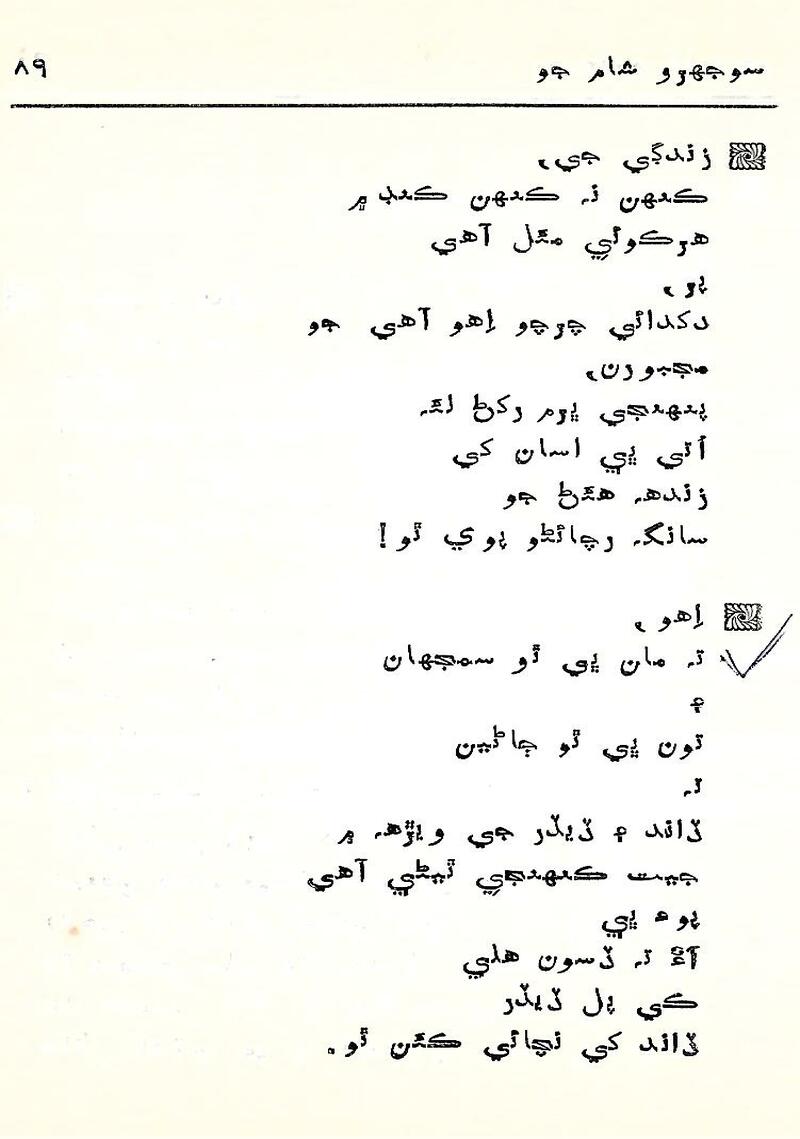 سوجهرو شام جو ۸۹
زندگي جي،
ڪنهن نه ڪنهن ڪنڊ ۾
هرڪوئي مئل آهي
پر،
دکدائي چرچو اِهو آهي جو
مجبورن،
پنهنجي ڀرم رکڻ لئہ
اُتي ڀي اسان کي
زندهہ هئڻ جو
سانگہ رچائڻو پوي ٿو!
اِهو،
تہ مان ڀي ٿو سمجهان
۽
تون ڀي ٿو ڄاڻين
تہ
ڏاند ۽ ڏيڏر جي ويڙهہ ۾
جيت ڪنهنجي ٿيڻي آهي
پوءِ ڀي
آءٌ تہ ڏسون هلي
ڪي پل ڏيڏر
ڏاند کي نچائي ڪئن ٿو.